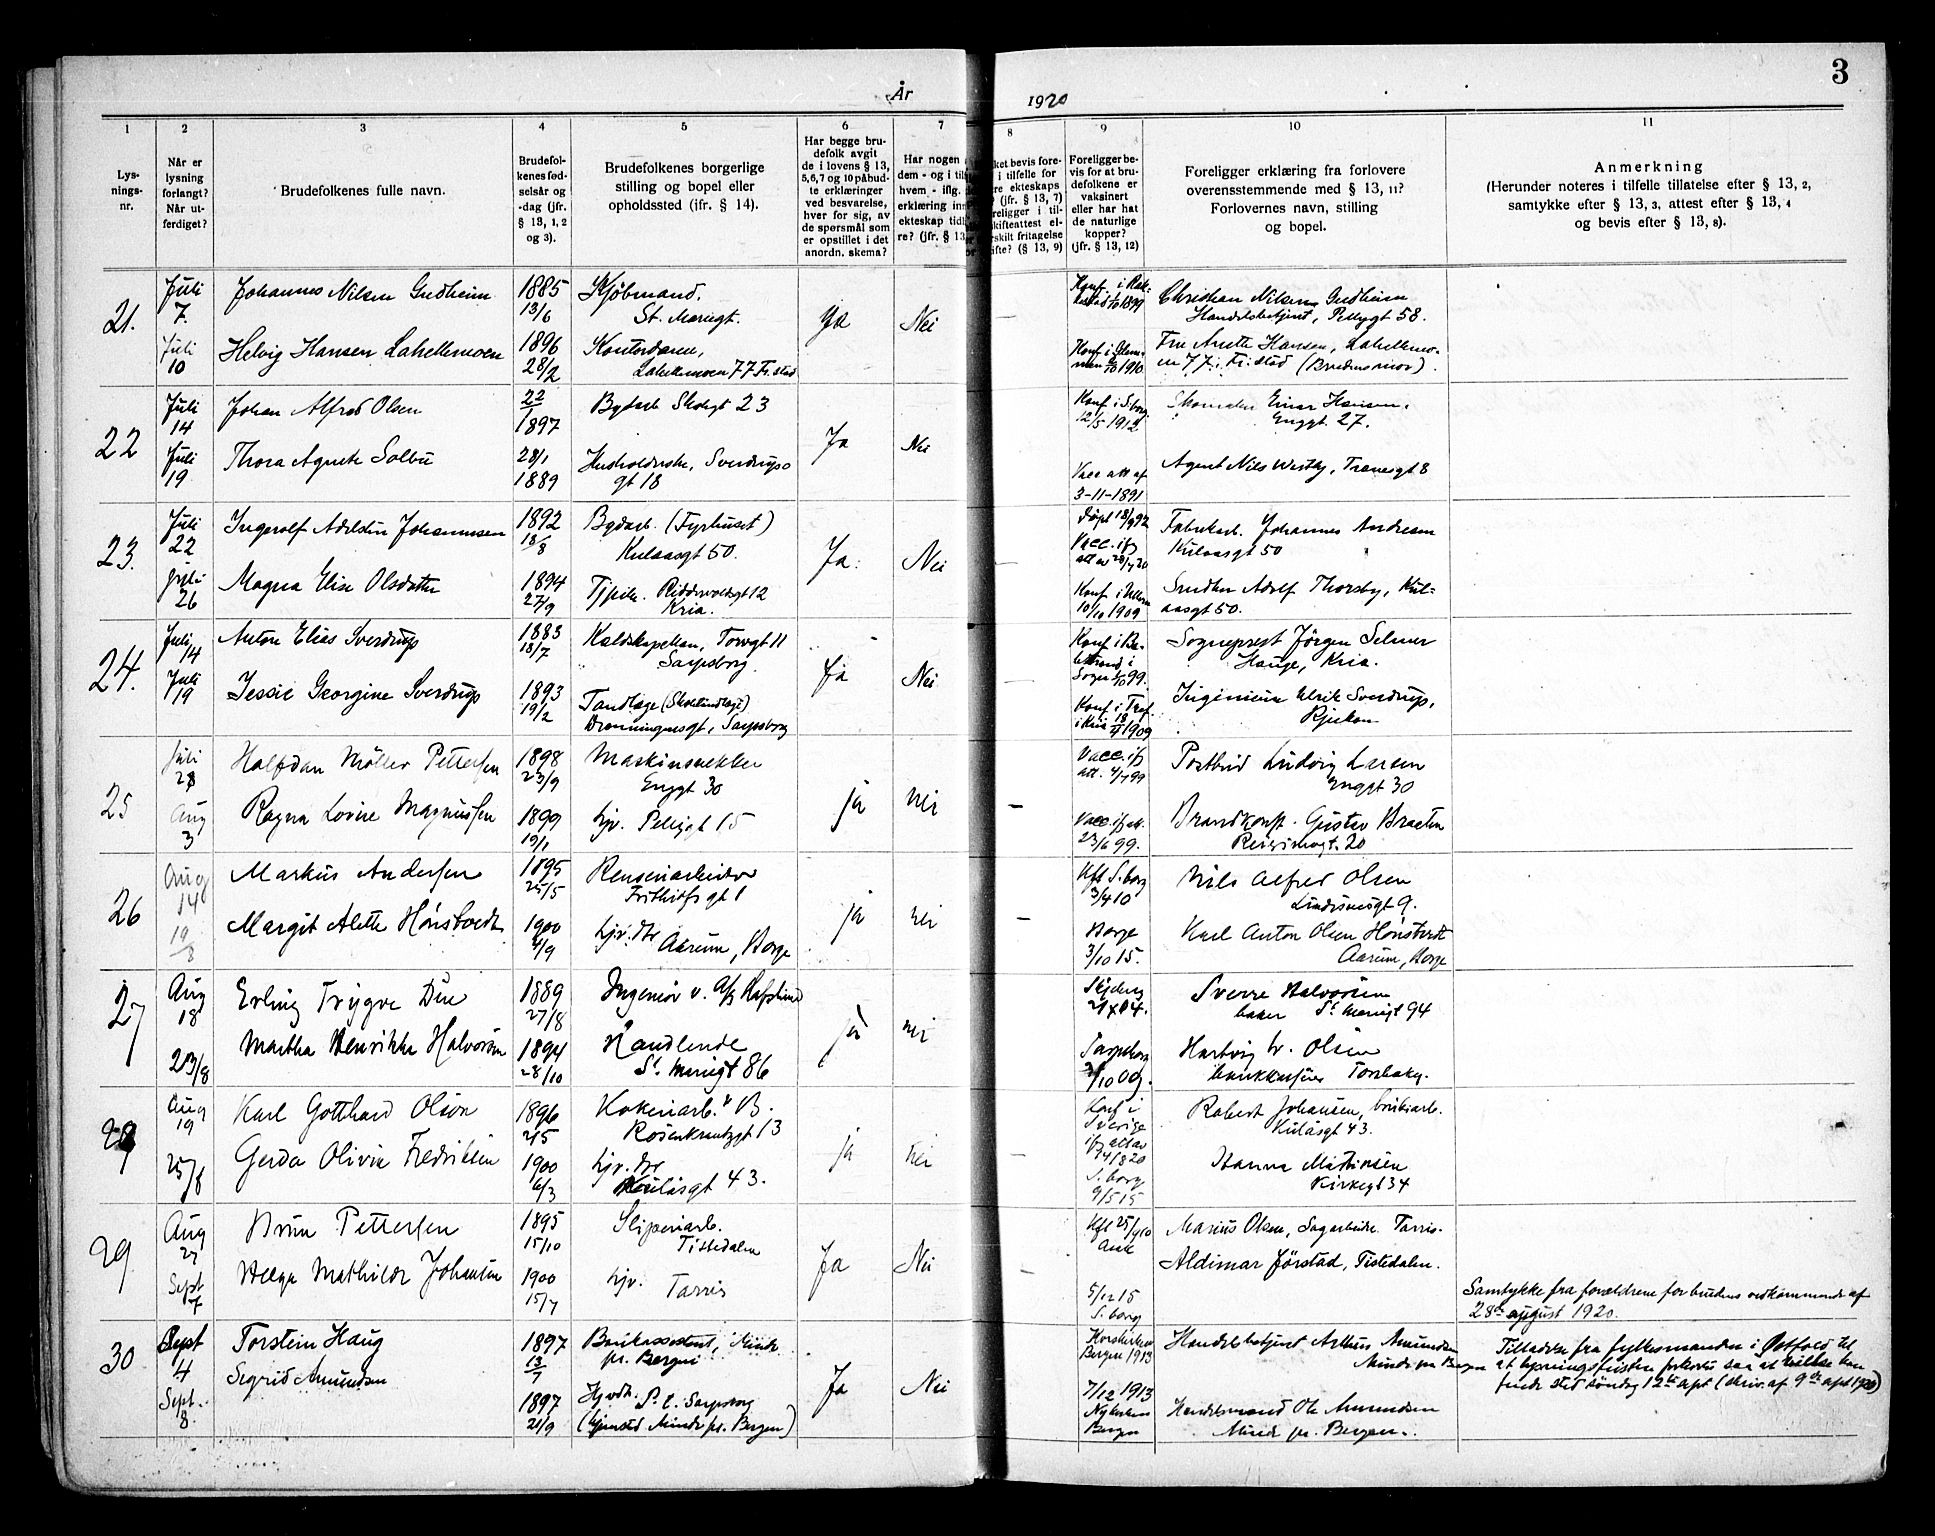 3
År 1920
1 2 3 4 5 6 7 8 9 10 11
Lys-
nings-
nr.
Når er
lysning
forlangt?
Når ut-
ferdiget?
Brudefolkenes fulle navn.
Brudefol-
kenes fød-
selsår og
-dag (jfr.
§ 13, 1, 2
og 3).
Brudefolkenes borgerlige
stilling og bopel eller
opholdssted (ifr. § 14).
Har begge bru-
defolk avgit
de i lovens § 13,
5, 6, 7 og 10 påbud-
te erklæringer
ved besvarelse,
hver for sig, av
de spørsmål som
er opstillet i det
anordn. skema?
Har nogen
dem - og i til
hvem - iflg.
erklæring inn
ekteskap tidl
re? (jfr. § 13
ket bevis fore-
i tilfelle for
re ekteskaps
? (jfr. § 13, 7)
religger i til-
skifteattest el-
rskilt fritagelse
ifte? (§ 13, 9)
Foreligger be-
vis for at bru-
defolkene er
vaksinert
eller har hat
de naturlige
kopper?
(jfr. § 13, 12)
Foreligger erklæring fra forlovere
overensstemmende med § 13, 11?
Forlovernes navn, stilling
og bopel.
Anmerkning
(Herunder noteres i tilfelle tillatelse efter § 13, 2,
samtykke efter § 13, 3, attest efter § 13, 4
og bevis efter § 13, 8).
21. Juli 7. Johannes Nilsen Gudheim 1885 13/6 Kjøbmand. St. Mariegt. Ja Nei Christian Nilsen Gudheim
Handelsbetjent, Pellygt 58.
Juli 10 Helvig Hansen Lahellemoen 1896 28/2 Kontordame, Lahellemoen 77 Fr.stad Fru Anette Hansen, Lahellemo-
en 77 i Fr.stad (Brudens mor).
22 Juli 14 Johan Alfred Olsen 22/1 1897 Byarb. Skolegt 23 Ja Nei Konf i S.borg 12/5 1912 Skomaker Einar Hansen,
Enggt. 27.
Juli 19 Thora Agnete Solbu 28/1 1889 Husholderske, Sverdrups
gt 18 Vacc att af
3-11-1891 Agent Nils Westby, Tranegt 8
23. Juli 22 Ingerolf Adelsten Johannessen 1892 18/8 (Fyrhuset)
Kulaasgt 50. Ja. Nei Døpt 18/9 92
Vacc. ifg
Fabrikarb. Johannes Andresen
Kulaasgt 50
Juli 26 Magna Elise Olsdatter 1894 27/9 Tjpike. Riddervoldsgt 12
Kria. 10/10 1909 Snedker Adolf Thorsby, Kul-
aasgt 50.
24. Juli 14 Anton Elias Sverdrup 1883 18/7 Kaldskapellan, Torvgt 11
Sarpsborg. Ja Nei Sogneprest Jørgen Selmer
Hauge, Kria.
Juli 19 Jessie Georgine Sverdrup 1893 19/2 Tandlæge (Skoletandlæge)
Dronningensgt, Sarpsborg Ingeniør Ulrik Sverdrup,
Rjukan
25 Juli 28 Halfdan Møller Pettersen 1898 23/9 Maskinsnekker
Enggt 30 ja nei – Vacc. if
att. 4/7 99 Postbud Ludvig Larsen
Enggt 30
Aug 3 Ragna Lovise Magnussen 1899 19/1 hjv. Pellygt 15 23/6 99. Brandkonst. Gustav Braaten
26 Aug 14 Markus Andersen 1895 25/5
Frithiofsgt 1 ja nei – Kft S.borg
3/4 10 Nils Alfred Olsen
Lindemansgt 9.
19/8 Margit Alette Hønstvedt 1900 4/9 hjv. dtr
Aarum, Borge Borge
3/10 15. Karl Anton Olsen Hønstvedt
Aarum, Borge
27 Aug 18 Erling Trygve Due 1889 27/8 Ingeniør v. A/S Hafslund ja nei – Sverre Halvorsen
baker St. Mariegt 94
23/8 Martha Henrikke Halvorsen 1894 28/10 Handlende
St. Mariegt 86 Sarpsborg Hartvig Olsen
28 Aug 19 Karl Gotthard Olson 1896 Kokeriarb. v B.
Rosenkrantzgt 13 ja nei – Konf i
Sverige
Robert Johansen, brukiarb.
Kulåsgt 43.
25/8 Gerda Olivie Fredriksen 1900 6/3 hjv. dtr
Kulåsgt 43. S.borg
9/5 15 Hanna Mathisen
Kirkegt 34
29 Aug 27 Brun Pettersen 1895 15/10 Sliperiarb.
Tistedalen Ja Nei Marius Olsen, Sagarbeider Tarris.
Sept 7 Helga Mathilde Johansen 1900 15/7 hjv. Tarris 5/12 15
S.borg Aldimar Jørstad, Tistedalen.
Samtykke fra forældrene for brudens vedkommende af
28de august 1920.
30 Sept 4 Torstein Haug 1897 13/7 Bankassistent, Minde
pr. Bergen Ja Nei Korskirken
Bergen 1913 Handelsbetjent Arthur Amundsen
Minde pr Bergen
Tilladelse fra fylkesmanden i Østfold til
at lysningsfristen forkortes saa at vielse kan
finde sted søndag 12te spt (skriv. af 9de spt 1920)
Sept. 8. Sigrid Amundsen 1897 21/9 Hjvdtr. P. t. Sarpsborg
(hjemsted Minde pr. Bergen) 7/12 1913
Nykirken
Bergen Handelsmand Ole Amundsen
Minde pr. Bergen.